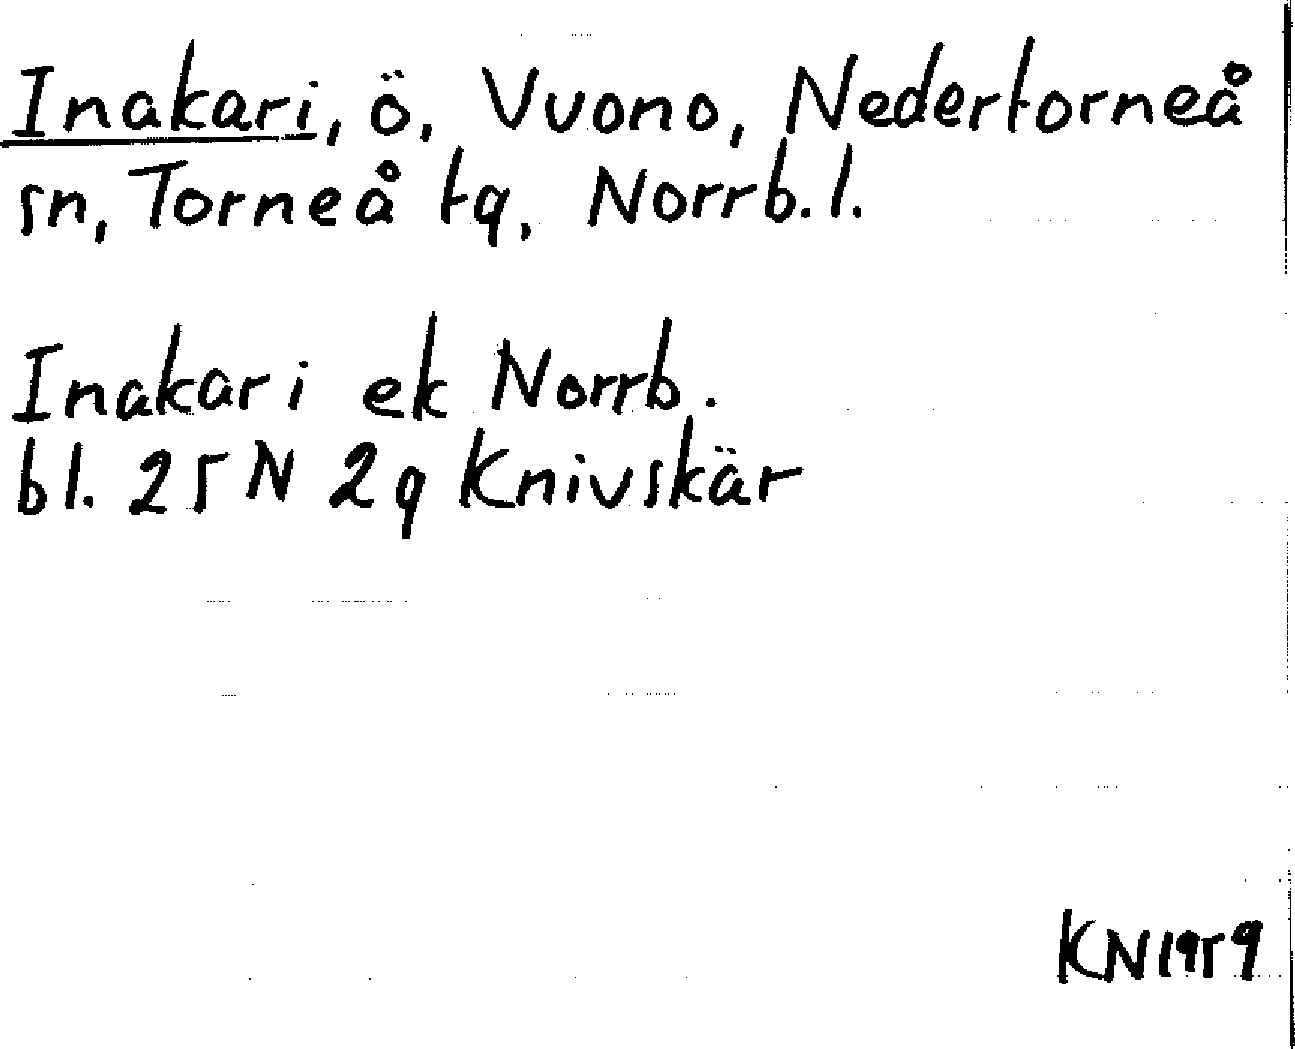 Inakari, ö, Vuono, Nedertorneå
sn, Torneå tg, Norrb. l.
Inakari ek Norrb.
bl. 25 N 2g Knivskär
KN 1959